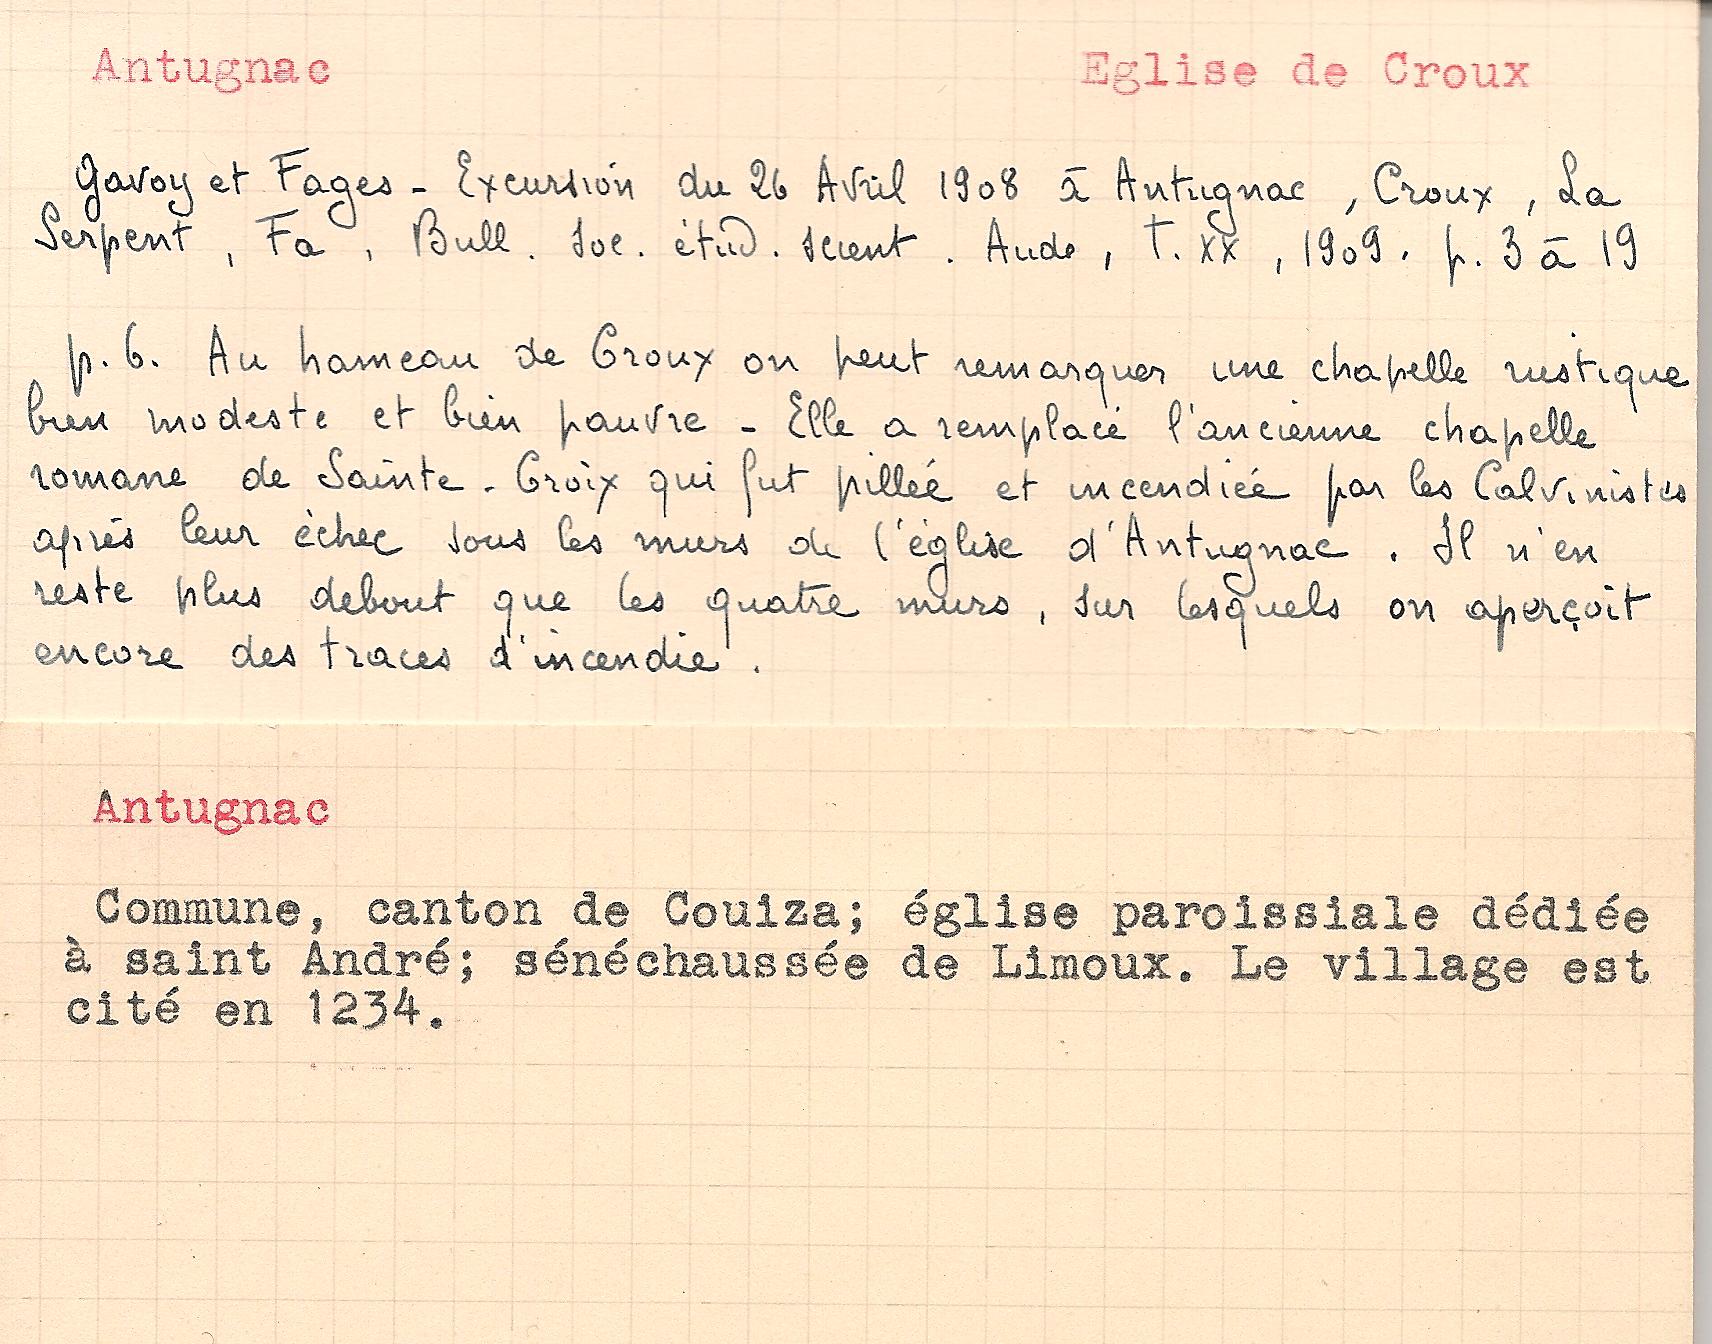 Antugnac Eglise de Croux
Gavoy et Fages - Excursion du 26 Avril 1908 à Antugnac, Croux, La
Serpent, Fa, Bull. Soc. étud. scient. Aude, T. XX, 1909. p. 3 à 19
p. 6. Au hameau de Croux on peut remarquer une chapelle rustique
bien modeste et bien pauvre - Elle a remplacé l'ancienne chapelle
romane de Sainte-Croix qui fut pillée et incendiée par les Calvinistes
après leur échec sous les murs de l'église d'Antugnac. Il n'en
reste plus debout que les quatre murs, sur lesquels on aperçoit
encore des traces d'incendie.
Antugnac
Commune, canton de Couiza; église paroissiale dédiée
à saint André; sénéchaussée de Limoux. Le village est
cité en 1234.